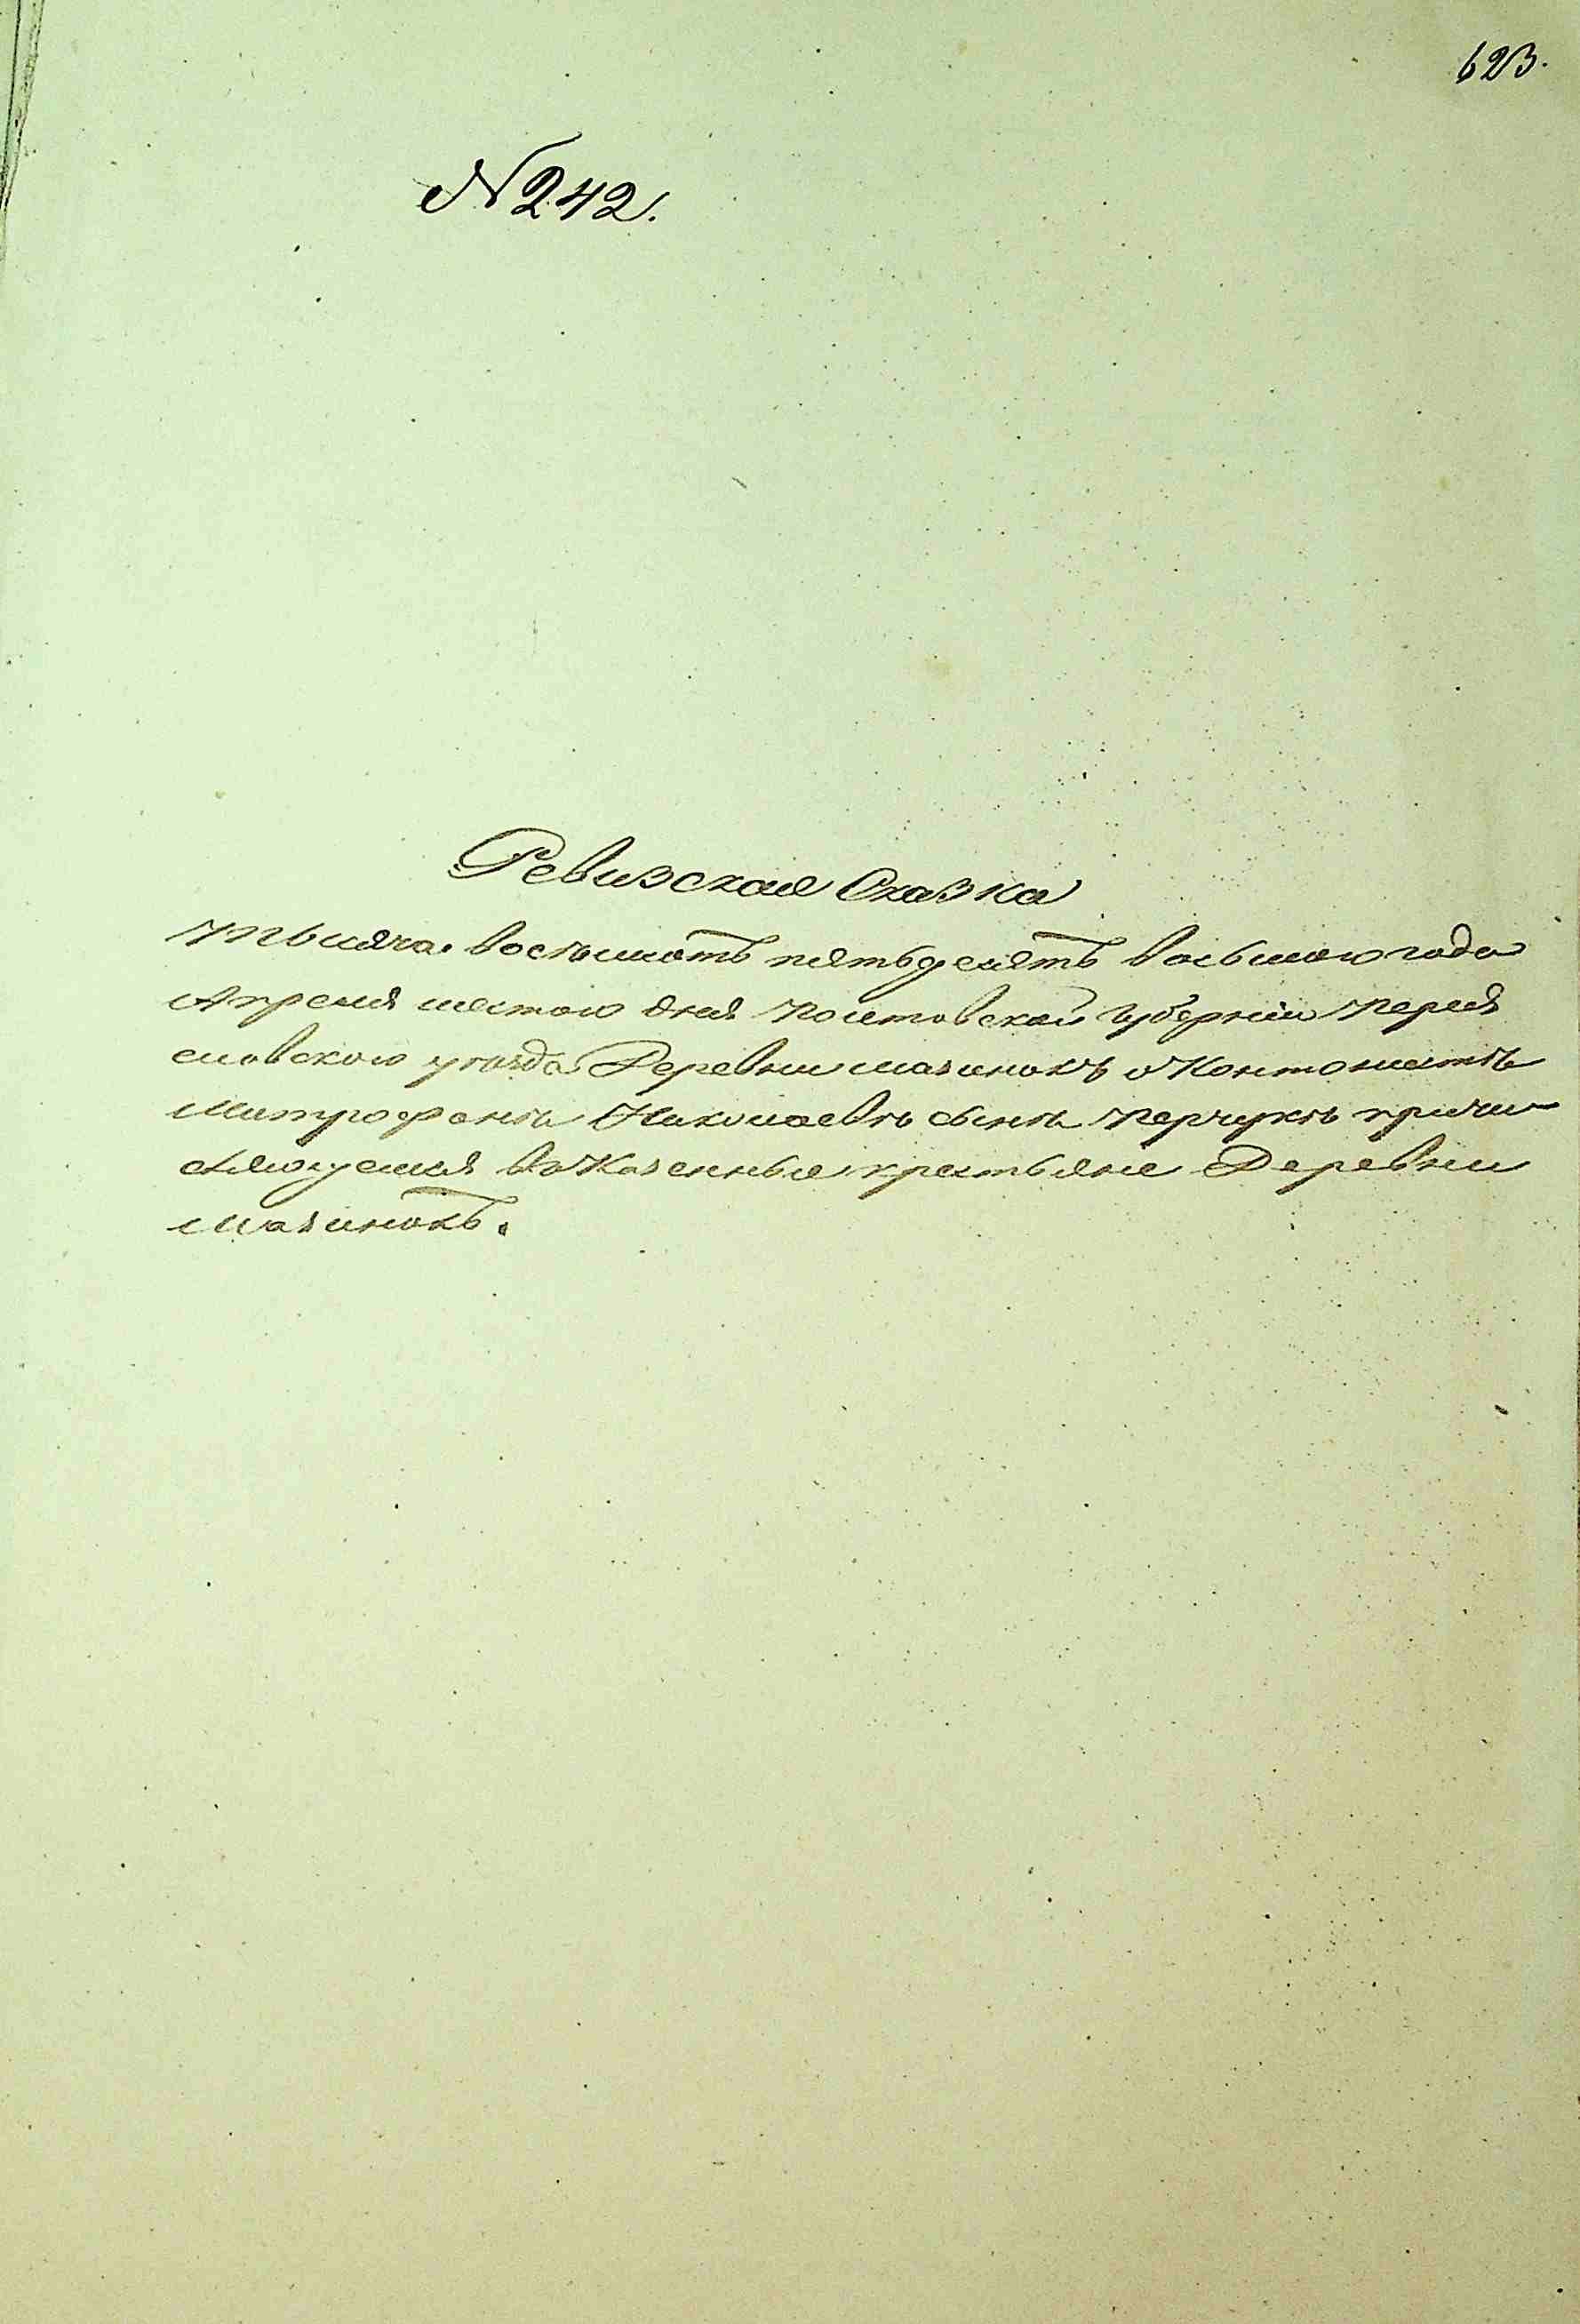 623.
№ 242.
Ревизская Сказка
Тысяча восемьсотъ пятьдесятъ восьмаго года
Апреля шестаго дня Полтавской губерніи Перея
славского уезда Деревни мазинокъ о Кантонистѣ
Митрофанѣ Николаевѣ сынѣ причи
сляющемся в Казенные крестьяне Деревни
мазинокъ.